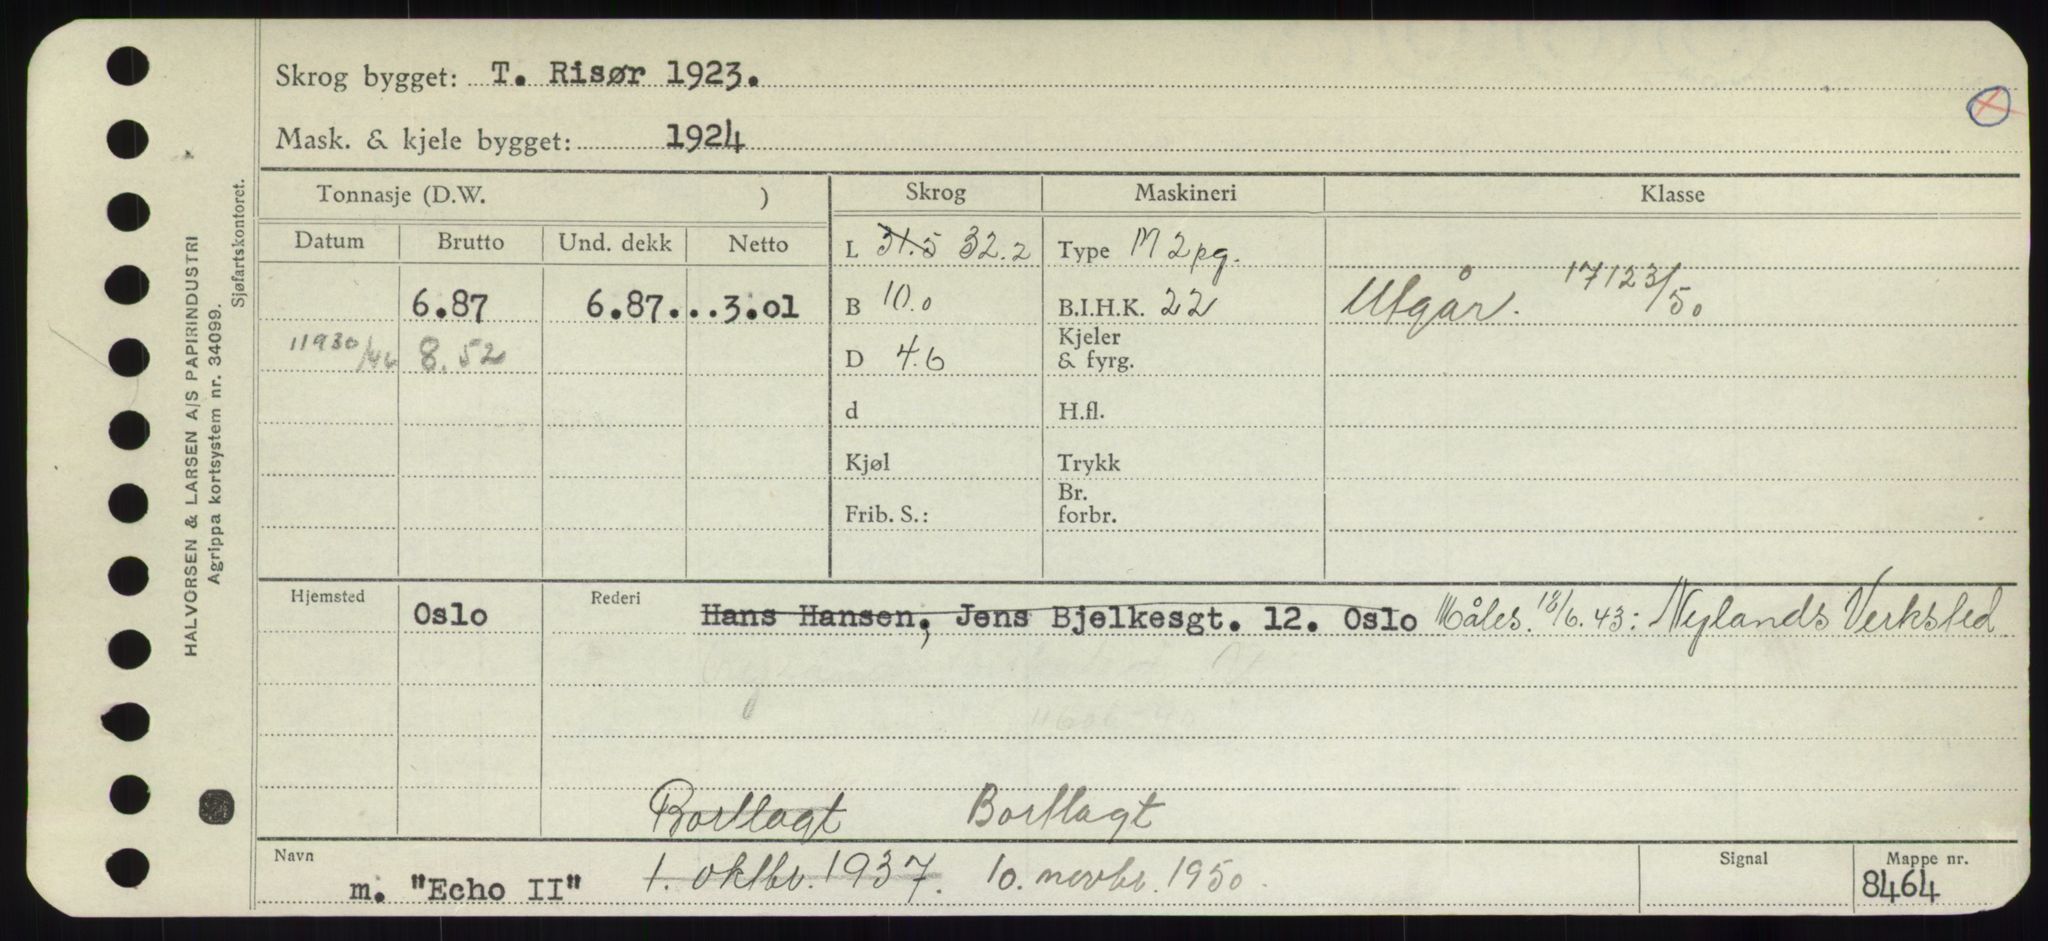 Skrog bygget: T. Risør 1923.
Mask. & kjele bygget: 1924
Tonnasje (D.W. )
Skrog
Maskineri
Klasse
Datum
Brutto
Und. dekk
Netto
L 31.5 32.2
Type M 2pg.
6.87 6.87...3.01
B 10.0
B.I.H.K. 22
Utgår. 17123/50
11930/46 8.52
D 4.6
Kjeler
& fyrg.
d
H.fl.
Kjøl
Trykk
Frib. S.:
Br.
forbr.
Hjemsted Oslo
Rederi Hans Hansen, Jens Bjelkesgt. 12. Oslo Måles. 18/6.43: Nylands Verksted
Bortlagt Bortlagt
Navn m. "Echo II" 1. oktbr. 1937. 10. novbr. 1950.
Signal
Mappe nr.
8464
HALVORSEN & LARSEN A/S PAPIRINDUSTRI
Agrippa kortsystem nr. 34099.
Sjøfartskontoret.